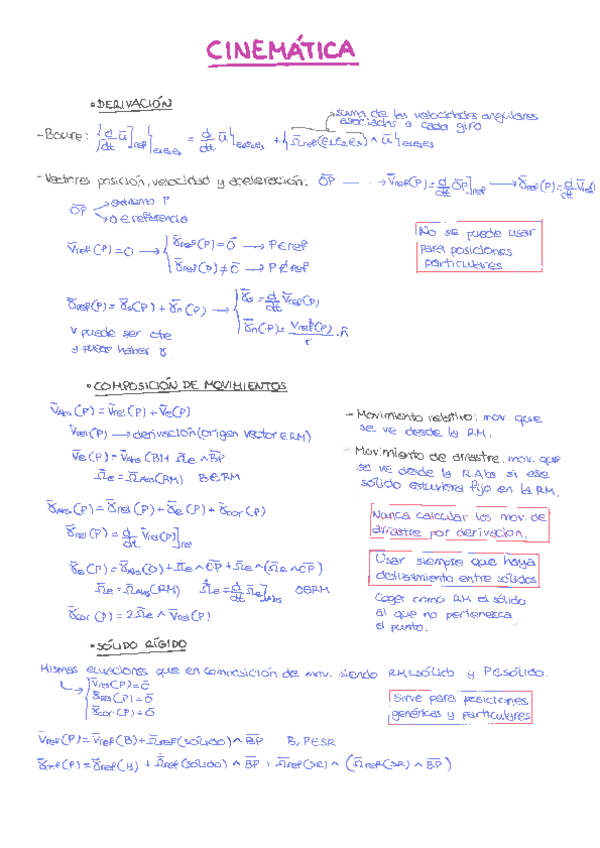 CINEMÁTICA
• DERIVACIÓN
suma de las velocidades angulares
asociadas a cada giro
- Boure: {d/dt ū]ref}e1e2e3 = d/dt ū}e1e2e3 + {Ω̄ref(e1e2e3) ∧ ū}e1e2e3
- Vectores posición, velocidad y aceleración: OP → v̄ref(P) = d/dt OP]ref → γ̄ref(P) = d/dt v̄ref
OP → extremo P
→ O ∈ referencia
No se puede usar
para posiciones
particulares
v̄ref(P) = 0 → { γ̄ref(P) = 0̄ → P ∈ ref
γ̄ref(P) ≠ 0̄ → P ∉ ref
γ̄ref(P) = γ̄s(P) + γ̄n(P) → { γ̄s = d/dt v̄ref(P)
γ̄n(P) = v²ref(P)/r · n̄
v puede ser cte
y puede haber γ.
• COMPOSICIÓN DE MOVIMIENTOS
v̄Abs(P) = v̄rel(P) + v̄e(P)
v̄rel(P) → derivación (origen vector ∈ RM)
v̄e(P) = v̄Abs(B) + Ω̄e ∧ BP
Ω̄e = Ω̄Abs(RM) B ∈ RM
- Movimiento relativo: mov que
se ve desde la RM.
- Movimiento de arrastre: mov. que
se ve desde la R.Abs si ese
sólido estuviera fijo en la RM.
γ̄Abs(P) = γ̄rel(P) + γ̄e(P) + γ̄cor(P)
γ̄rel(P) = d/dt v̄rel(P)]rel
γ̄e(P) = γ̄Abs(O) + Ω̄̇e ∧ OP + Ω̄e ∧ (Ω̄e ∧ OP)
Ω̄e = Ω̄Abs(RM) Ω̄̇e = d/dt Ω̄e]Abs O ∈ RM
γ̄cor(P) = 2·Ω̄e ∧ v̄rel(P)
Nunca calcular los mov. de
arrastre por derivacion.
Usar siempre que haya
deslizamiento entre sólidos
Coger como RM el sólido
al que no pertenezca
el punto.
• SÓLIDO RÍGIDO
Mismas ecuaciones que en composición de mov. siendo RM = sólido y P ∈ sólido.
{ v̄rel(P) = 0̄
γ̄rel(P) = 0̄
γ̄cor(P) = 0̄
Sirve para posiciones
genéricas y particulares
v̄ref(P) = v̄ref(B) + Ω̄ref(SÓLIDO) ∧ BP B, P ∈ SR
γ̄ref(P) = γ̄ref(B) + Ω̄̇ref(SÓLIDO) ∧ BP + Ω̄ref(SR) ∧ (Ω̄ref(SR) ∧ BP)